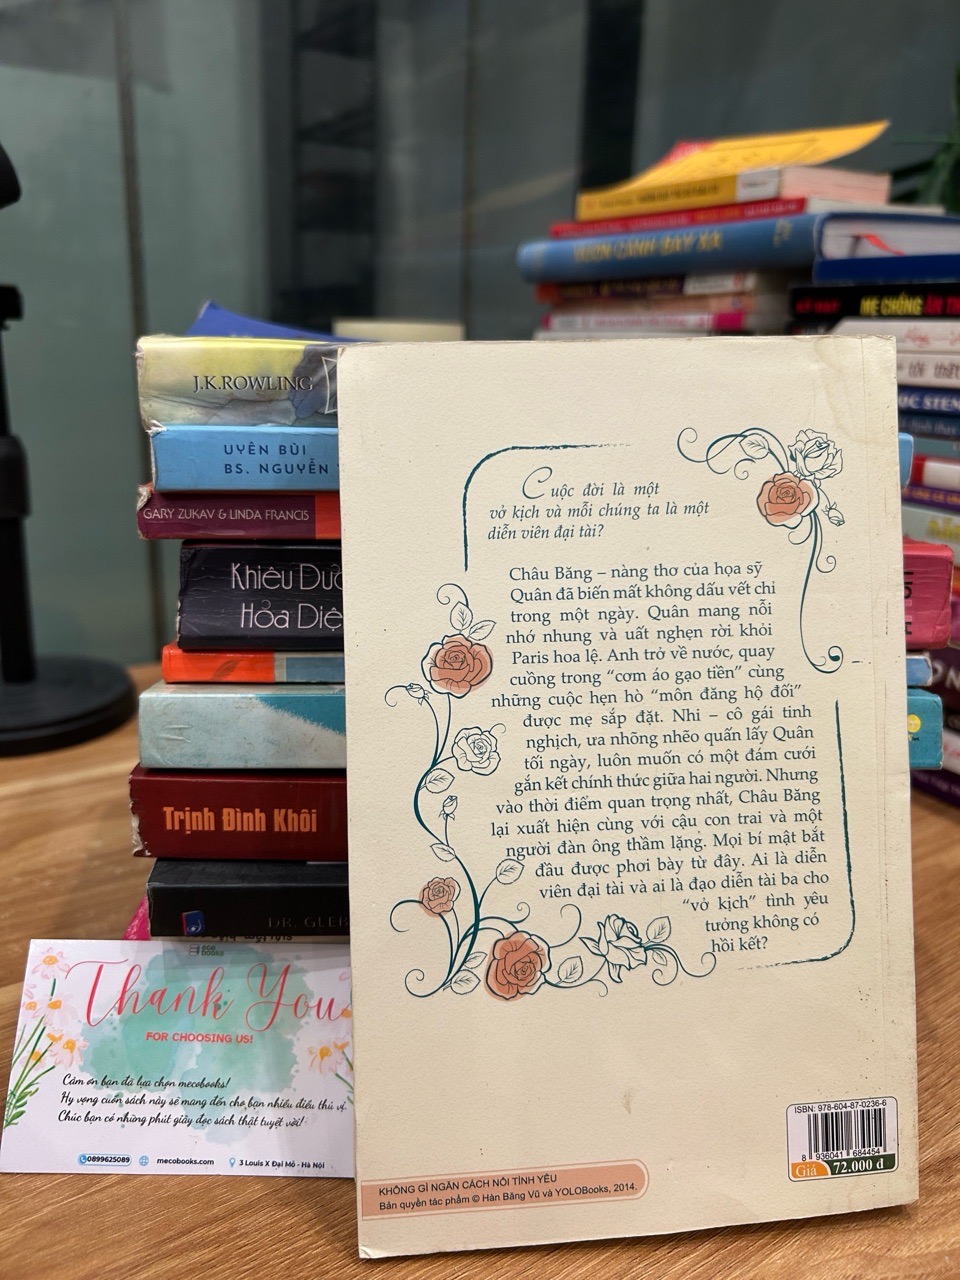 VƯƠN CÁNH BAY XA
MẸ CHỒNG
J.K.ROWLING
UYÊN BÙI
BS. NGUYỄN
GARY ZUKAV & LINDA FRANCIS
Khiêu
Hỏa
Trịnh Đình Khôi
DR. GLEB
Cuộc đời là một
vở kịch và mỗi chúng ta là một
diễn viên đại tài?
Châu Băng – nàng thơ của họa sỹ
Quân đã biến mất không dấu vết chỉ
trong một ngày. Quân mang nỗi
nhớ nhung và uất nghẹn rời khỏi
Paris hoa lệ. Anh trở về nước, quay
cuồng trong “cơm áo gạo tiền” cùng
những cuộc hẹn hò “môn đăng hộ đối”
được mẹ sắp đặt. Nhi – cô gái tinh
nghịch, ưa nhõng nhẽo quấn lấy Quân
tối ngày, luôn muốn có một đám cưới
gắn kết chính thức giữa hai người. Nhưng
vào thời điểm quan trọng nhất, Châu Băng
lại xuất hiện cùng với cậu con trai và một
người đàn ông thầm lặng. Mọi bí mật bắt
đầu được phơi bày từ đây. Ai là diễn
viên đại tài và ai là đạo diễn tài ba cho
“vở kịch” tình yêu
tưởng không có
hồi kết?
Thank You
FOR CHOOSING US!
Cảm ơn bạn đã lựa chọn mecobooks!
Hy vọng cuốn sách này sẽ mang đến cho bạn nhiều điều thú vị.
Chúc bạn có những phút giây đọc sách thật tuyệt vời!
0899625089 mecobooks.com 3 Louis X Đại Mỗ - Hà Nội
ISBN: 978-604-87-0236-6
8 936041 684454
Giá 72.000 đ
KHÔNG GÌ NGĂN CÁCH NỔI TÌNH YÊU
Bản quyền tác phẩm © Hàn Băng Vũ và YOLOBooks, 2014.